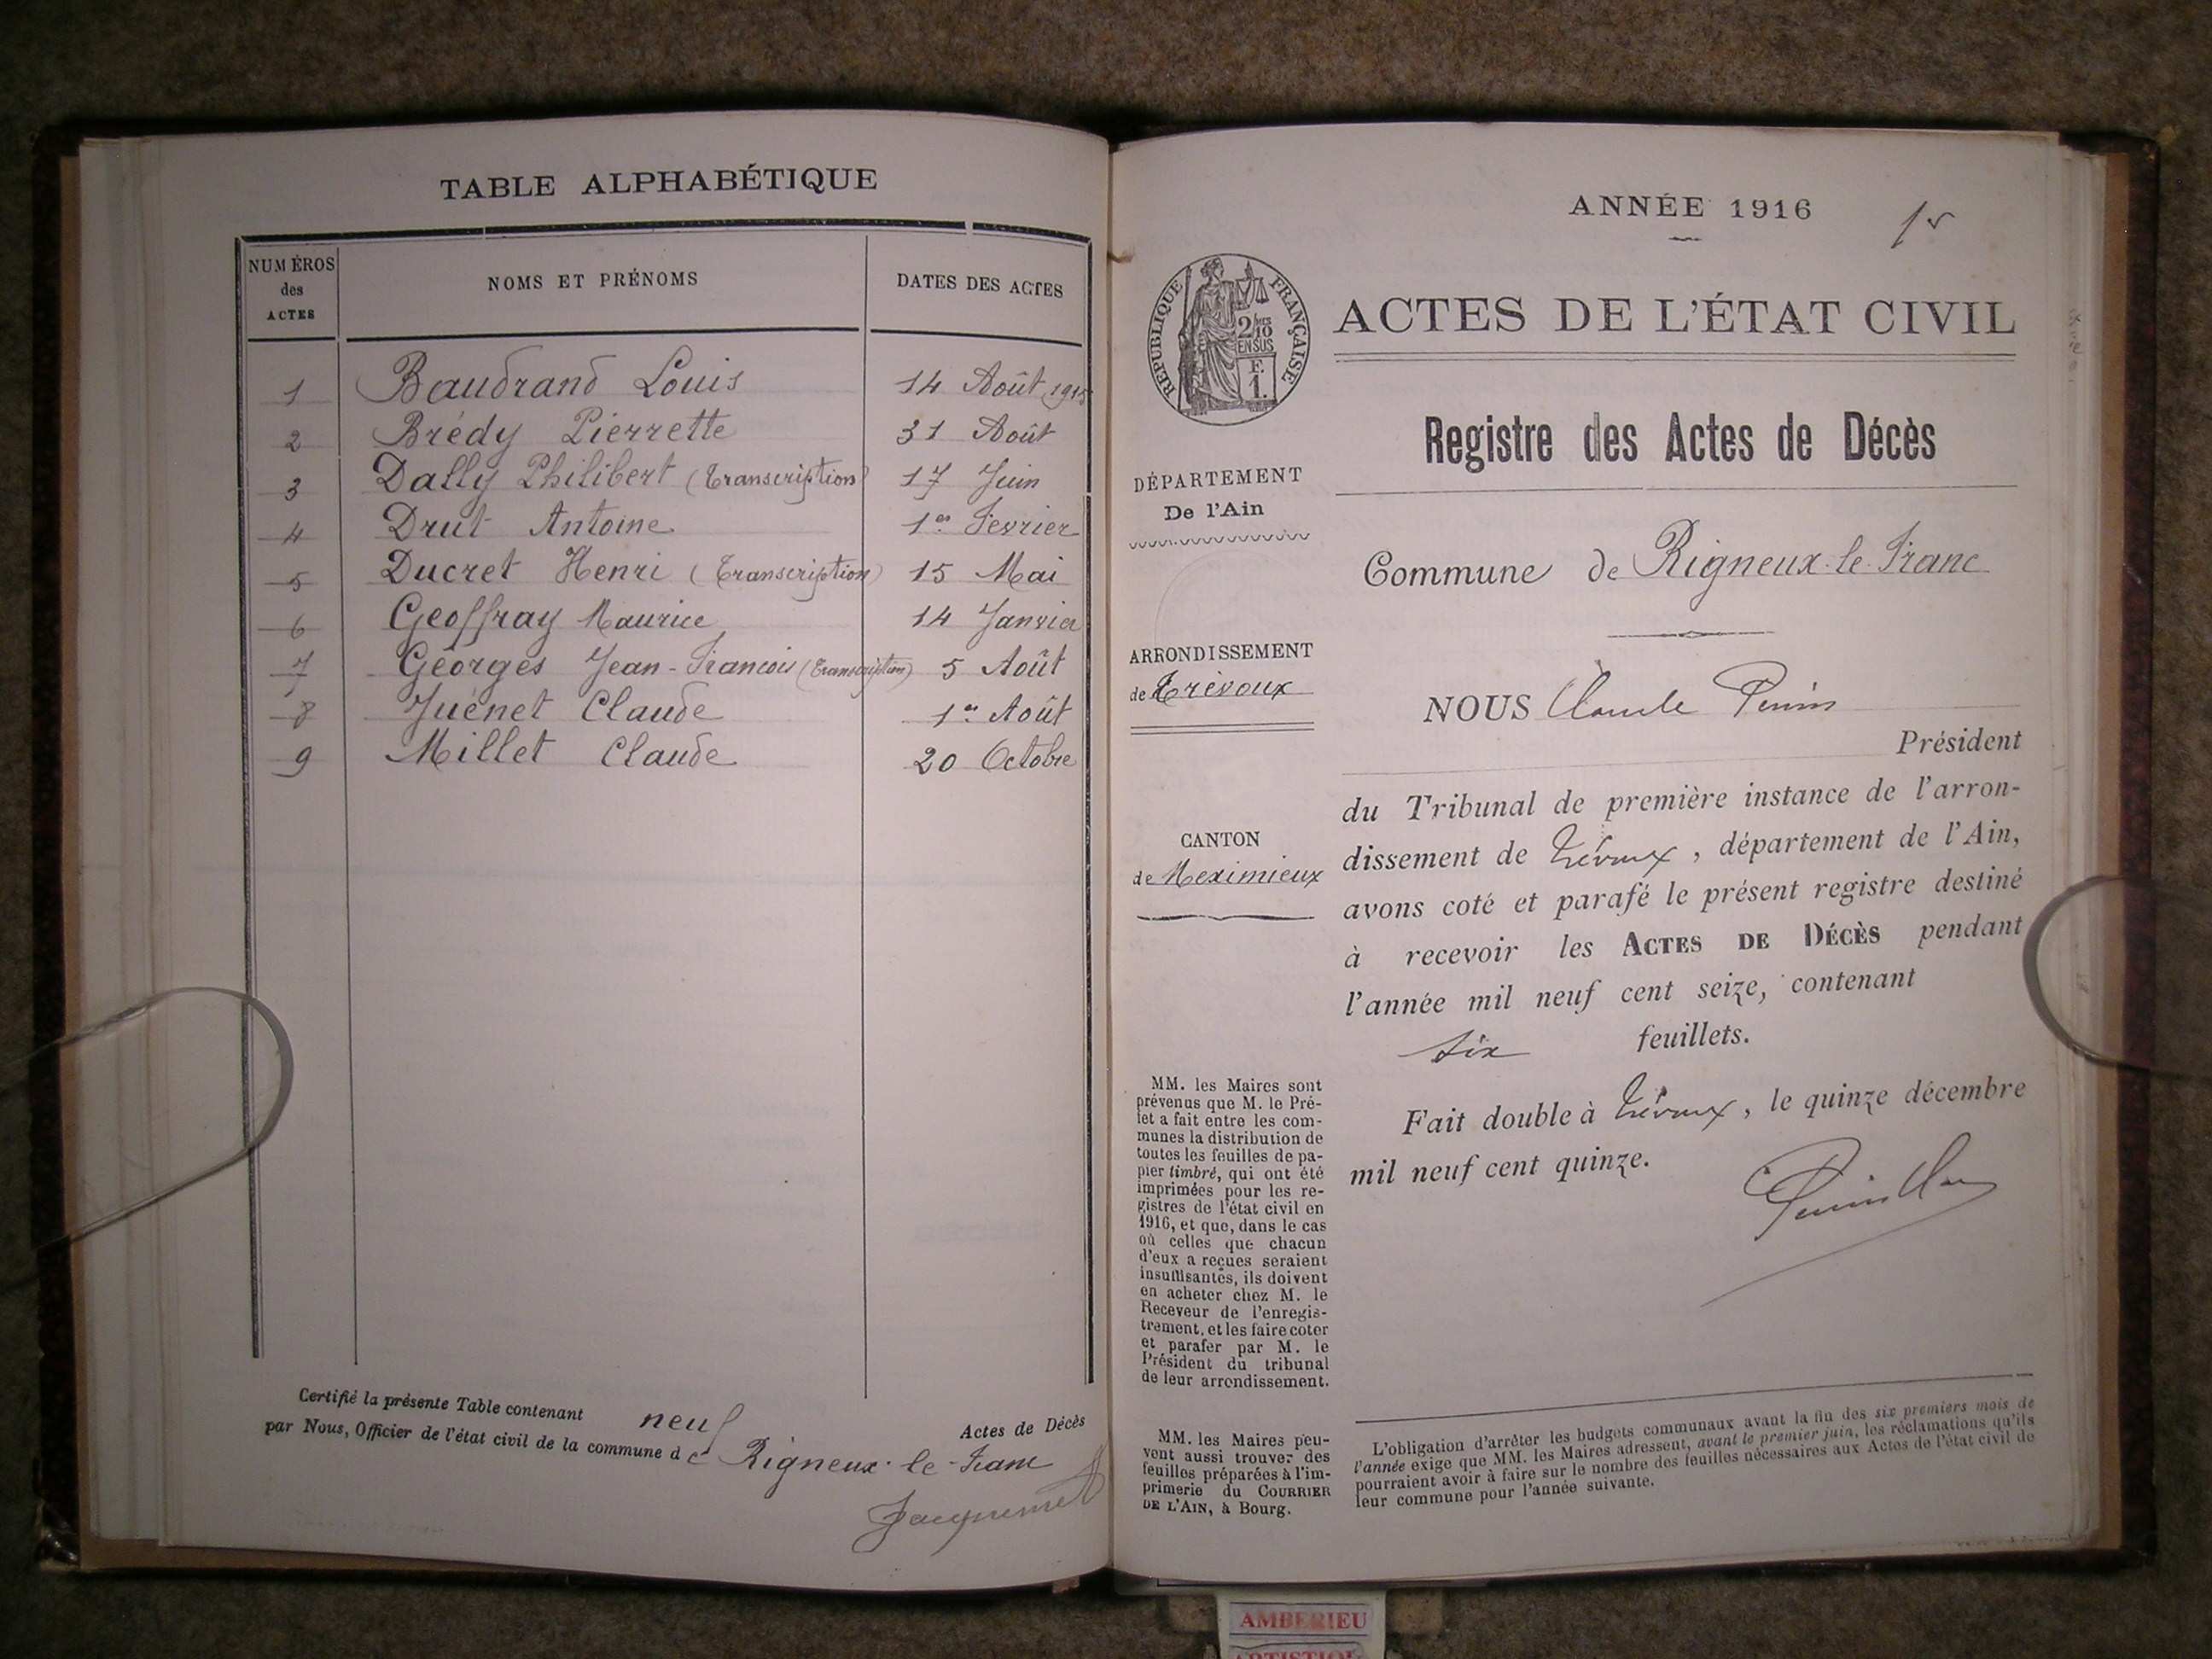 TABLE ALPHABÉTIQUE
NUMÉROS
des
ACTES
NOMS ET PRÉNOMS
DATES DES ACTES
1 Baudrand Louis 14 Août 1915
2 Brédy Pierrette 31 Août
3 Dally Philibert (Transcription) 17 Juin
4 Drut Antoine 1er Fevrier
5 Ducret Henri (Transcription) 15 Mai
6 Geoffray Maurice 14 Janvier
7 Géorges Jean-Francois (Transcription) 5 Août
8 Juénet Claude 1er Août
9 Millet Claude 20 Octobre
Certifié la présente Table contenant neuf Actes de Décès
par Nous, Officier de l'état civil de la commune de Rigneux-le-Franc
Jacquemet
ANNÉE 1916
RÉPUBLIQUE FRANÇAISE
2/10 MES
EN SUS
F.
1.
ACTES DE L'ÉTAT CIVIL
Registre des Actes de Décès
DÉPARTEMENT
De l'Ain
ARRONDISSEMENT
de Trévoux
CANTON
de Meximieux
MM. les Maires sont
prévenus que M. le Pré-
fet a fait entre les com-
munes la distribution de
toutes les feuilles de pa-
pier timbré, qui ont été
imprimées pour les re-
gistres de l'état civil en
1916, et que, dans le cas
où celles que chacun
d'eux a reçues seraient
insuffisantes, ils doivent
en acheter chez M. le
Receveur de l'enregis-
trement, et les faire coter
et parafer par M. le
Président du tribunal
de leur arrondissement.
MM. les Maires peu-
vent aussi trouver des
feuilles préparées à l'im-
primerie du COURRIER
DE L'AIN, à Bourg.
Commune de Rigneux-le-Franc
NOUS Claude
Président
du Tribunal de première instance de l'arron-
dissement de Trévoux, département de l'Ain,
avons coté et parafé le présent registre destiné
à recevoir les ACTES DE DÉCÈS pendant
l'année mil neuf cent seize, contenant
six feuillets.
Fait double à Trévoux, le quinze décembre
mil neuf cent quinze.
L'obligation d'arrêter les budgets communaux avant la fin des six premiers mois de
l'année exige que MM. les Maires adressent, avant le premier juin, les réclamations qu'ils
pourraient avoir à faire sur le nombre des feuilles nécessaires aux Actes de l'état civil de
leur commune pour l'année suivante.
AMBERIEU